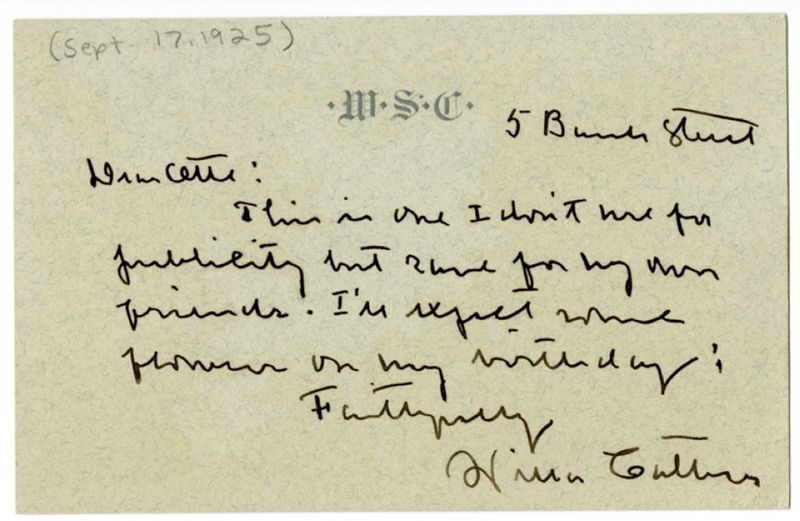 (Sept 17, 1925)
·W·S·C·
5 Bank Street
Dear
This is one I don't use for
publicity but save for my own
friends. I'll expect some
flowers on my birthday!
Faithfully
Willa Cather